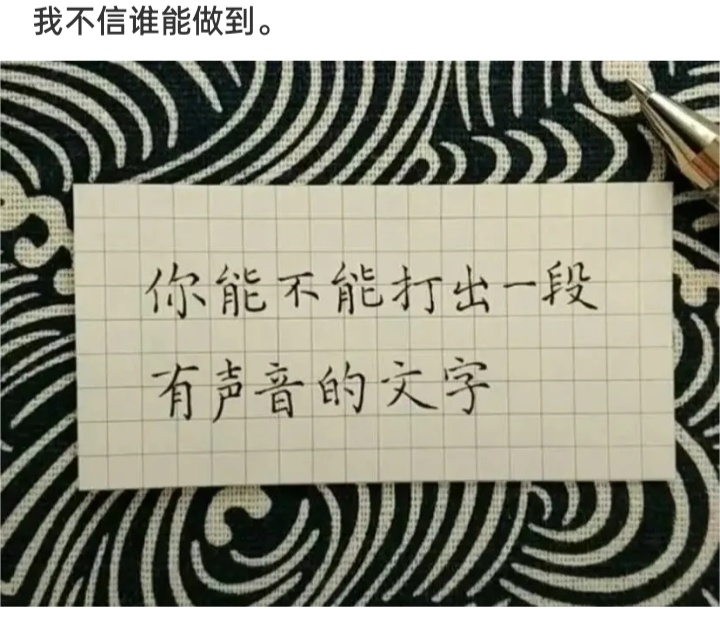 我不信谁能做到。
你能不能打出一段
有声音的文字